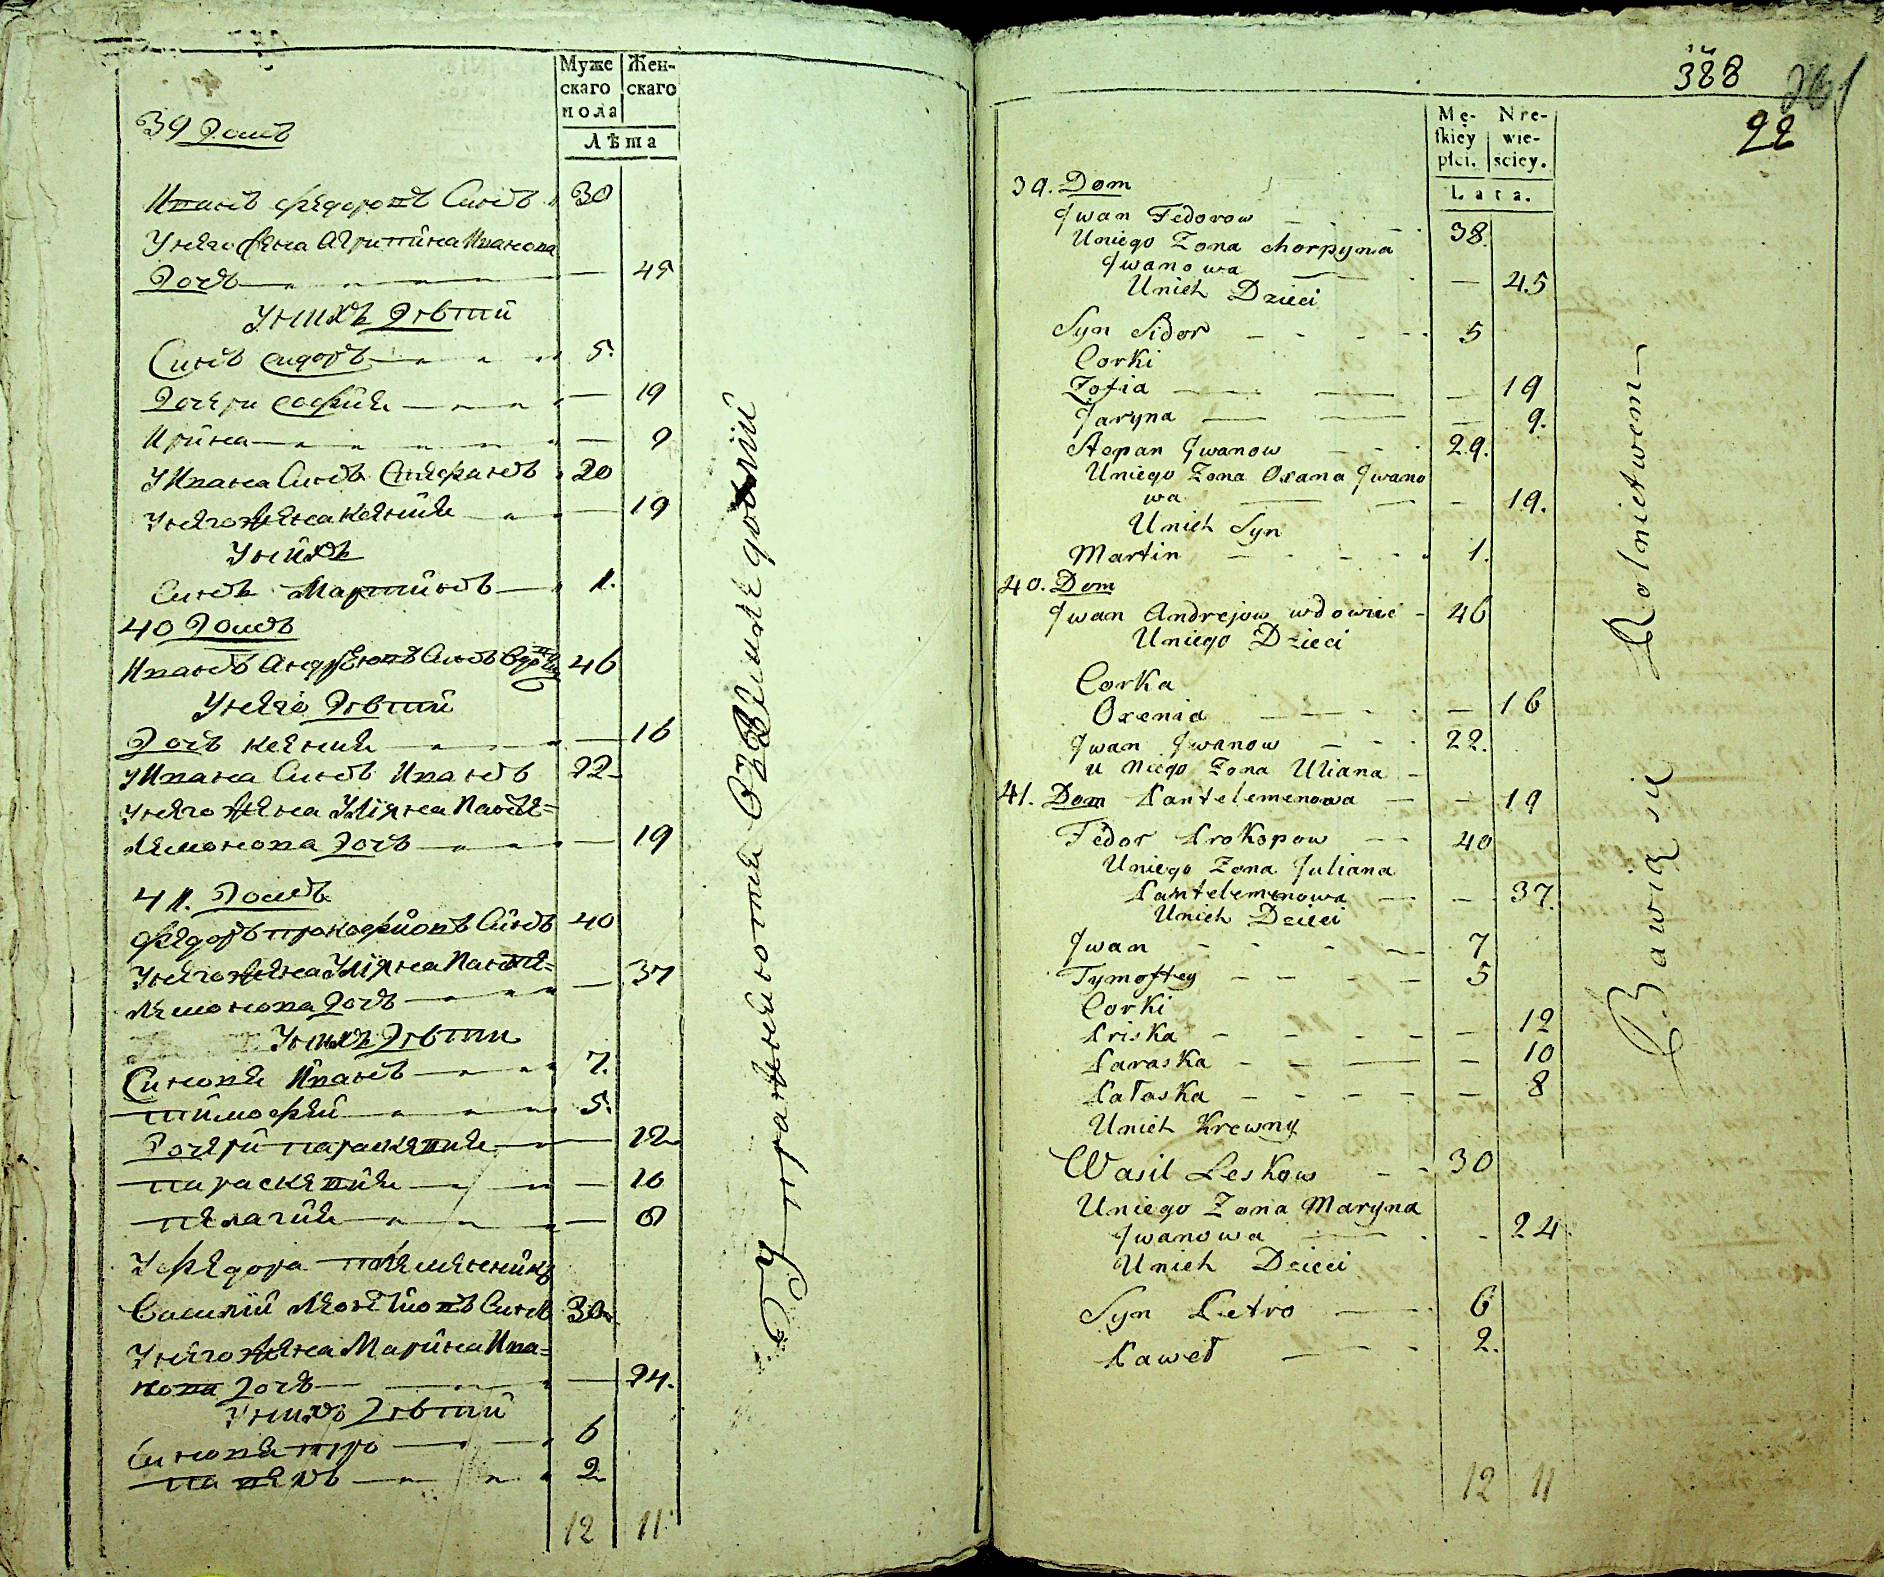 Муже Жен-
скаго скаго
пола
Лѣта
39 Домъ
Иванъ Федоровъ Синъ 30
У него жена Агрипина Иванова
Дочь — 45
У нихъ Дѣтий
Синъ Сидоръ 5.
Дочери София — 19
Ирина — 9
У Ивана Синъ Стефанъ 20
У него жена Ксения — 19
У нихъ
Синъ Мартинъ 1.
40 Домъ
Иванъ Андреювъ Синъ 46
У него Дѣтий
Дочь Ксения — 16
У Ивана Синъ Иванъ 22
У него жена Улияна Панте=
лемонова Дочь — 19
41. Домъ
Федоръ Прокофиовъ Синъ 40
У него жена Улияна Панте=
лемонова Дочь — 37
У нихъ Дѣтии
Синовя Иванъ 7.
Тимофей 5.
Дочери Параскевия — 12
Параскевия — 10
Пелагия — 8
У Федора племенникъ
Василий Леонтиовъ Синъ 30
У него жена Марина Ива=
нова Дочь — 24.
У нихъ Дѣтий
Синовя Петро 6
Павелъ 2
12 11
Упражняются в земледелии
388
22
Mę- Nre-
skiey wie-
płci. sciey.
Lata.
39. Dom
Jwan Fedorow 38.
Uniego Zona Horpyna
Jwanowa — 45
Unich Dzieci
Syn Sidor 5
Corki
Zofia — 19
Jaryna — 9.
Stepan Jwanow 29.
Uniego Zona Oxana Jwano
wa — 19.
Unich Syn
Martin 1.
40. Dom
Jwan Andrejow wdowiec 46
Uniego Dzieci
Corka
Oxenia — 16
Jwan Jwanow 22.
u Niego Zona Uliana
41. Dom Pantelemenowa — 19
Fedor Prokopow 40
Uniego Zona Juliana
Pantelemenowa — 37.
Unich Dzieci
Jwan 7
Tymoftey 5
Corki
Priska — 12
Paraska — 10
Pałaska — 8
Unich Krewny
Wasil Leskow 30
Uniego Zona Maryna
Jwanowa — 24
Unich Dzieci
Syn Petro 6
Paweł 2.
12 11
Bawią się Rolnictwem